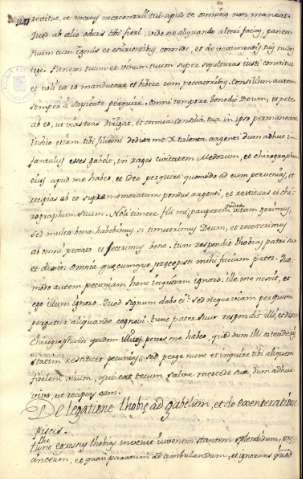 Quod ab alio odies tibi fieri, vide ne aliquando alteri facias, panem
tuum cum egenis et esurientibus comede, et de vestimentis tuis nudos
tege. Panem tuum et vinum tuum super sepulturas iusti constitue
et noli ex eo manducare et bibere cum peccatoribus. Consilium autem
semper a sapiente perquire. Omni tempore benedic Deum, et pete
ab eo, ut vias tuas dirigat, et omnia consilia tua in ipso permaneant
Indico etiam tibi fili mi dedisse me X talenta argenti dum adhuc in
fantulus esses gabelo, in Rages civitatem Medorum, et chirographum
eius apud me habeo, et Deo perquire quomodo ad eum pervenias, et
recipias ab eo supra memoratum pondus argenti, et restituas ei chi
rographum suum. Noli timere fili mi, pauperem vitam gerimus,
sed multa bona habebimus si timuerimus Deum, et recesserimus
ab omni peccato et fecerimus bene. Tunc respondit Thobias patri suo
et dixit: Omnia quaecumque praecepisti mihi faciam pater. Quo
modo autem pecuniam hanc inquiram ignoro. Ille me nescit, et
ego illum ignoro. Quod signum dabo ei? sed neque viam per quam
pergatur aliquando cognovi. Tunc pater suus respondit illi, et dixit
Chirographum quidem illius penes me habeo, quod dum illi ostenderis
statim restituet pecuniam, sed perge nunc et inquire tibi aliquem
fidelem virum, qui eat tecum salva mercede sua dum adhuc
vivo, ut recipias eam.
De legatione Thobie ad gabelum, et de exenteratione
piscis.
Tunc egressus Thobias invenit iuvenem stantem splendidum, et
cinctum, et quasi paratum ad ambulandum, et ignorans quod